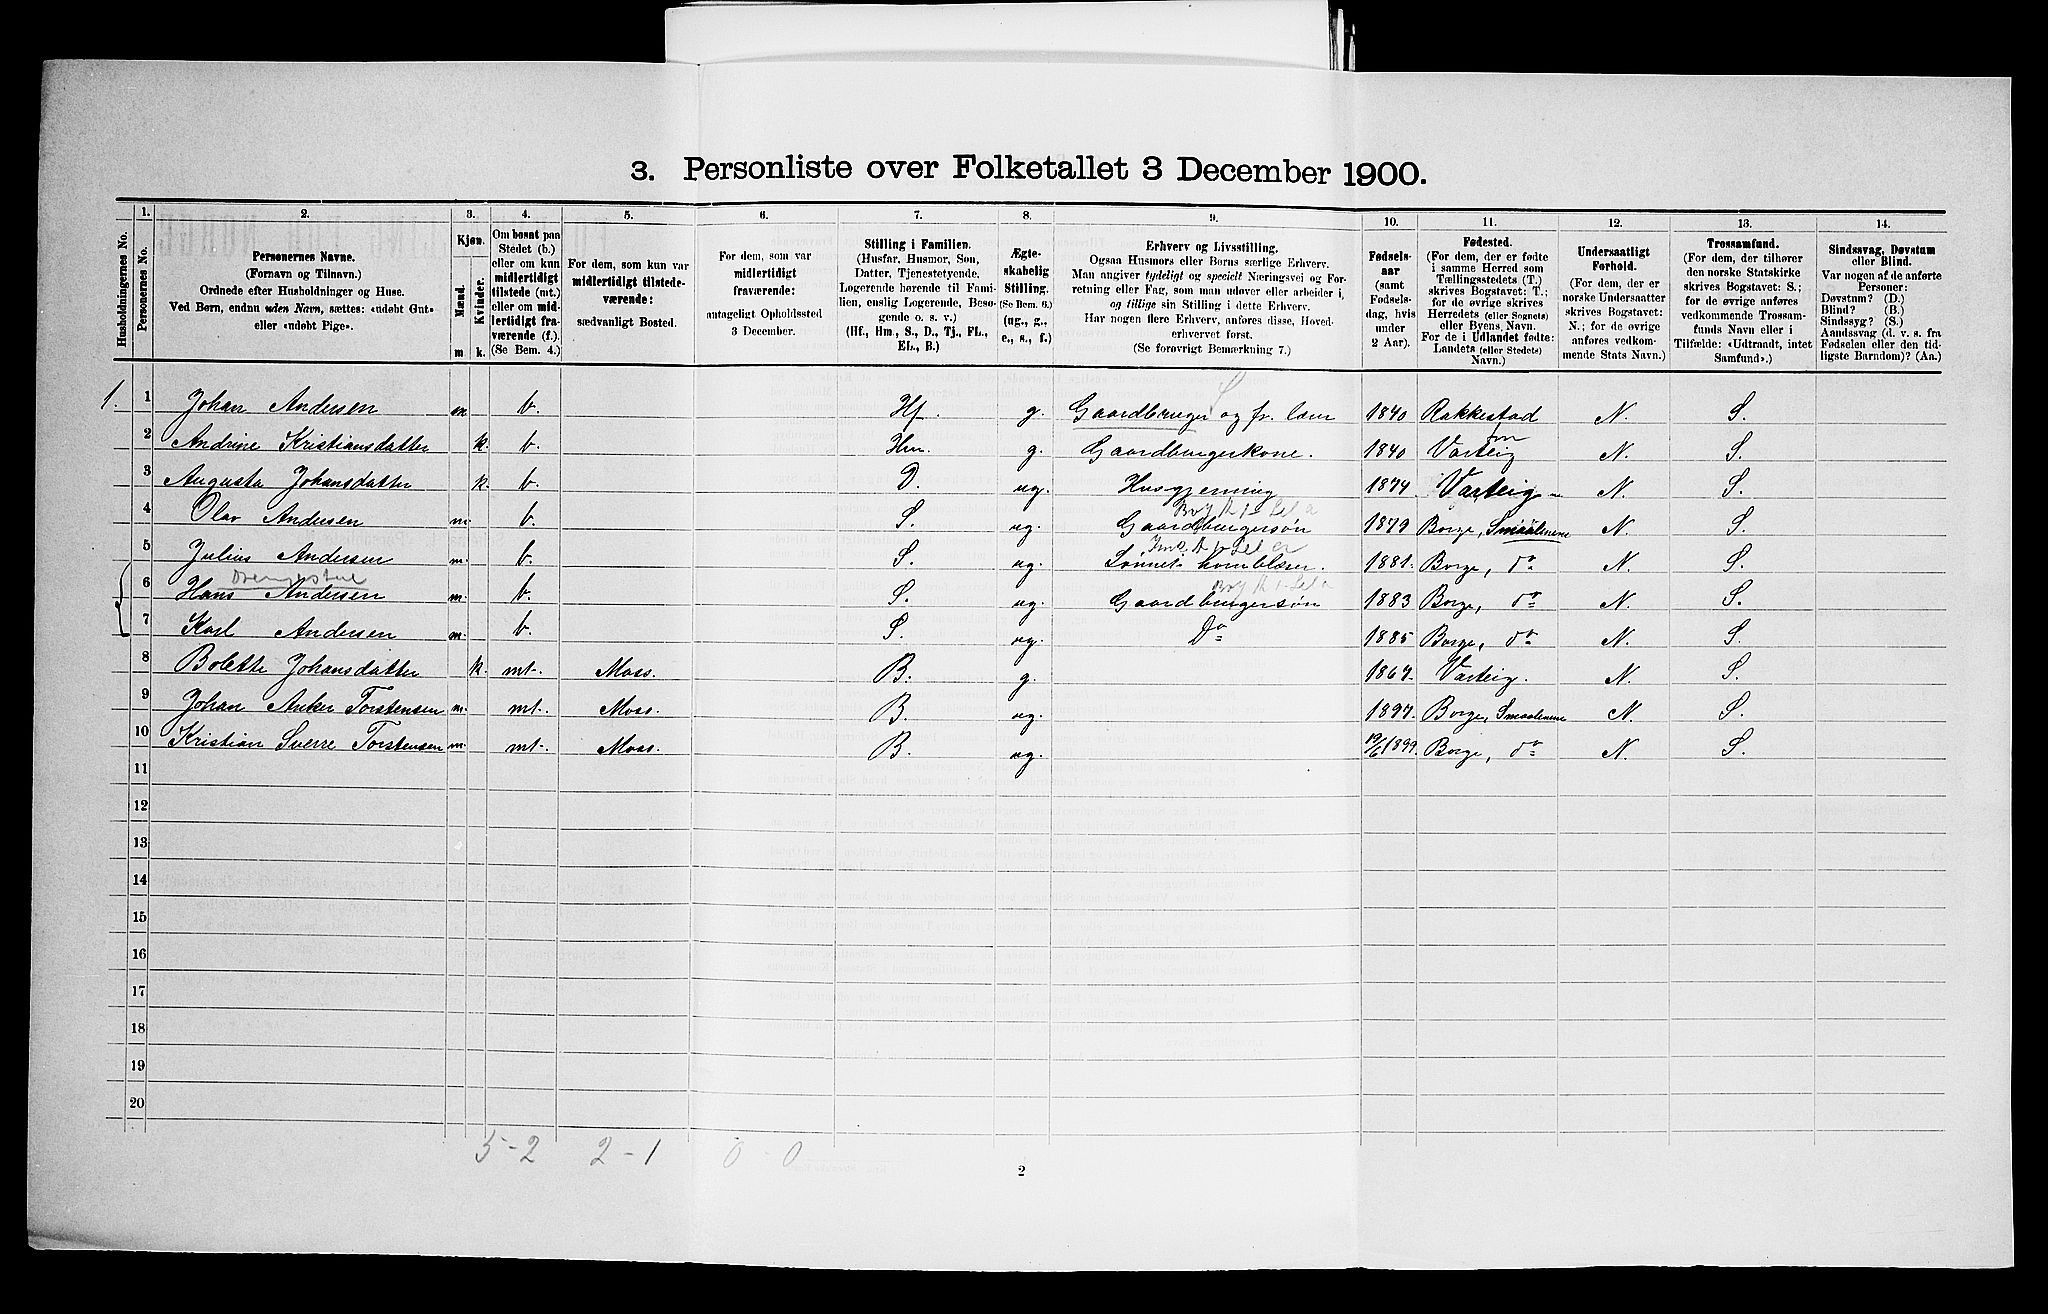 3. Personliste over Folketallet 3 December 1900.
Husholdningernes No.
1.
Personernes No.
2.
Personernes Navne.
(Fornavn og Tilnavn.)
Ordnede efter Husholdninger og Huse.
Ved Børn, endnu uden Navn, sættes: «udøbt Gut»
eller «udøbt Pige».
3.
Kjøn.
Mænd.
Kvinder.
m k.
4.
Om bosat paa
Stedet (b.)
eller om kun
midlertidigt
tilstede (mt.)
eller om mid-
lertidigt fra-
værende (f.).
(Se Bem. 4.)
5.
For dem, som kun var
midlertidigt tilstede-
værende:
sædvanligt Bosted.
6.
For dem, som var
midlertidigt
fraværende:
antageligt Opholdssted
3 December.
7.
Stilling i Familien.
(Husfar, Husmor, Søn,
Datter, Tjenestetyende,
Logerende hørende til Fami-
lien, enslig Logerende, Besø-
gende o. s. v.)
(Hf., Hm., S., D., Tj., FL.,
EL., B.)
8.
Ægte-
skabelig
Stilling.
(Se Bem. 6.)
(ug., g.,
e., s., f.)
9.
Erhverv og Livsstilling.
Ogsaa Husmors eller Børns særlige Erhverv.
Man angiver tydeligt og specielt Næringsvei og For-
retning eller Fag, som man udøver eller arbeider i,
og tillige sin Stilling i dette Erhverv.
Har nogen flere Erhverv, anføres disse, Hoved-
erhvervet først.
(Se forøvrigt Bemærkning 7.)
10.
Fødsels-
aar
(samt
Fødsels-
dag, hvis
under
2 Aar).
11.
Fødested.
(For dem, der er fødte
i samme Herred som
Tællingsstedets (T.)
skrives Bogstavet: T.;
for de øvrige skrives
Herredets (eller Sognets)
eller Byens Navn.
For de i Udlandet fødte:
Landets (eller Stedets)
Navn.)
12.
Undersaatligt
Forhold.
(For dem, der er
norske Undersaatter
skrives Bogstavet:
N.; for de øvrige
anføres vedkom-
mende Stats Navn.)
13.
Trossamfund.
(For dem, der tilhører
den norske Statskirke
skrives Bogstavet: S.;
for de øvrige anføres
vedkommende Trossam-
funds Navn eller i
Tilfælde: «Udtraadt, intet
Samfund».)
14.
Sindssvag, Døvstum
eller Blind.
Var nogen af de anførte
Personer:
Døvstum? (D.)
Blind? (B.)
Sindssyg? (S.)
Aandssvag (d. v. s. fra
Fødselen eller den tid-
ligste Barndom)? (Aa.)
1. 1 Johan Andersen m b. Hf. g. Gaardbruger og fr. 1840 Rakkestad N. S.
2 Andrine Kristiansdatter k. b. Hm. g. Gaardbrugerkone. 1840 Varteig N. S.
3 Augusta Johansdatter k. b. D. ug. Husgjerning 1874 Varteig N. S.
4 Olav Andersen m. b. S. ug. Gaardbrugersøn 1879 Borge, Smaalenene N. S.
5 Julius Andersen m. b. S. ug. 1881. Borge, do N. S.
Drengestue
6 Hans Andersen m. b. S. ug. Gaardbrugersøn 1883 Borge, do N. S.
7 Karl Andersen m. b. S. ug. Do 1885 Borge, do N. S.
8 Bolette Johansdatter k. mt. Moss. B. g. 1867. Varteig. N. S.
9 Johan Anker Torstensen m. mt. Moss. B. ug. 1897. Borge, Smaalenene N. S.
10 Kristian Sverre Torstensen m. mt. Moss. B. ug. 19/6 1899. Borge, do N. S.
11
12
13
14
15
16
17
18
19
20
5-2 2-1 0-0
2